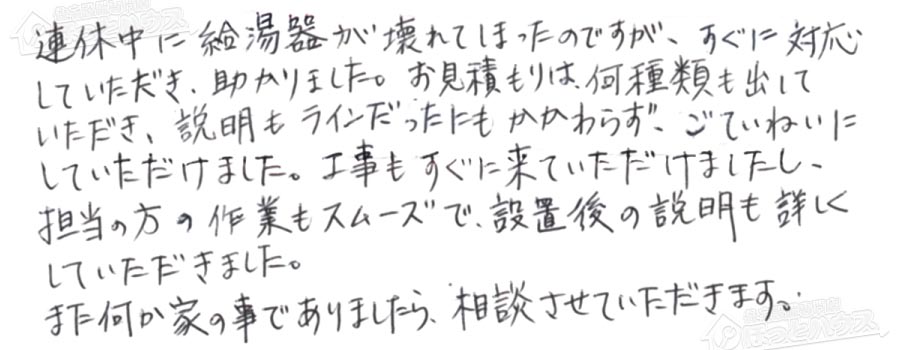 連休中に給湯器が壊れてしまったのですが、すぐに対応
していただき、助かりました。お見積もりは、何種類も出して
いただき、説明もラインだったにもかかわらず、ごていねいに
していただけました。工事もすぐに来ていただけましたし、
担当の方の作業もスムーズで、設置後の説明も詳しく
していただきました。
また何か家の事でありましたら、相談させていただきます。
ほっとハウス